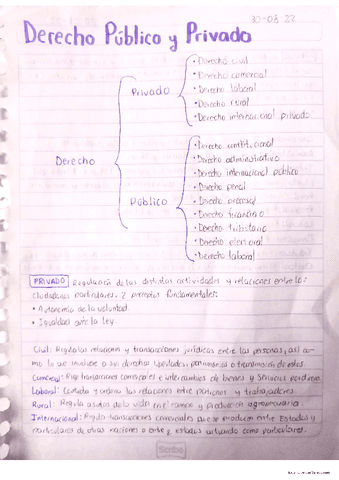 30-08-22
Derecho Público y Privado
Derecho
Privado
• Derecho civil
• Derecho comercial
• Derecho laboral
• Derecho rural
• Derecho internacional privado
Público
• Derecho constitucional
• Derecho administrativo
• Derecho internacional público
• Derecho penal
• Derecho procesal
• Derecho financiero
• Derecho tributario
• Derecho electoral
• Derecho laboral
PRIVADO Regulación de las distintas actividades y relaciones entre los
ciudadanos particulares. 2 preceptos fundamentales:
• Autonomía de la voluntad.
• Igualdad ante la ley.
Civil: Regula las relaciones y transacciones jurídicas entre las personas, así co-
mo lo que involucre a sus derechos, libertades, patrimonios o transmisión de estos
Comercial: Rige transacciones comerciales e intercambios de bienes y servicios
Laboral: Limita y ordena las relaciones entre patrones y trabajadores.
Rural: Regula asuntos de la vida en el campo y producción agropecuaria
Internacional: Regula transacciones comerciales que se producen entre Estados y
particulares de otras naciones o entre 2 estados actuando como particulares.
Scribe